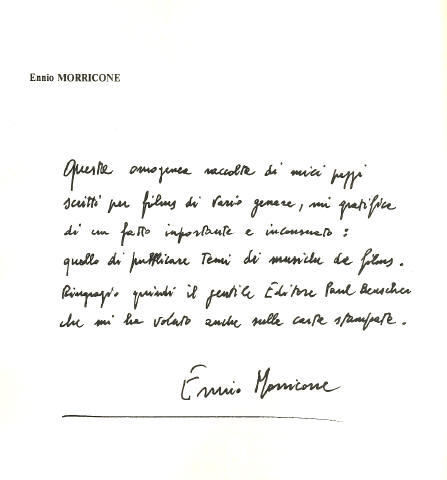 Ennio MORRICONE
Questa omogenea raccolta di miei pezzi
scritti per films di vario genere, mi gratifica
di un fatto importante e inconsueto:
quello di pubblicare temi di musiche da films.
Ringrazio quindi il gentile Editore Paul Beuscher
che mi ha voluto anche sulla carta stampata.
Ennio Morricone